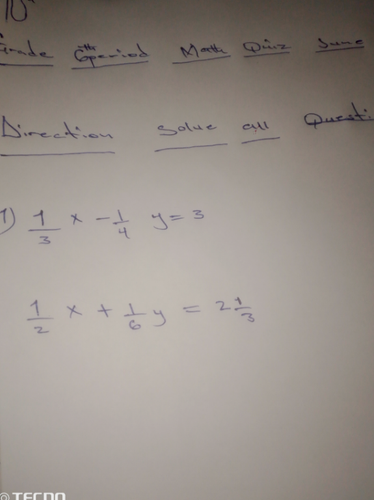 10th
Grade 6th period Math Quiz June
Direction Solve all Questi
1) 1/3 x - 1/4 y = 3
1/2 x + 1/6 y = 2 1/3
TECNO